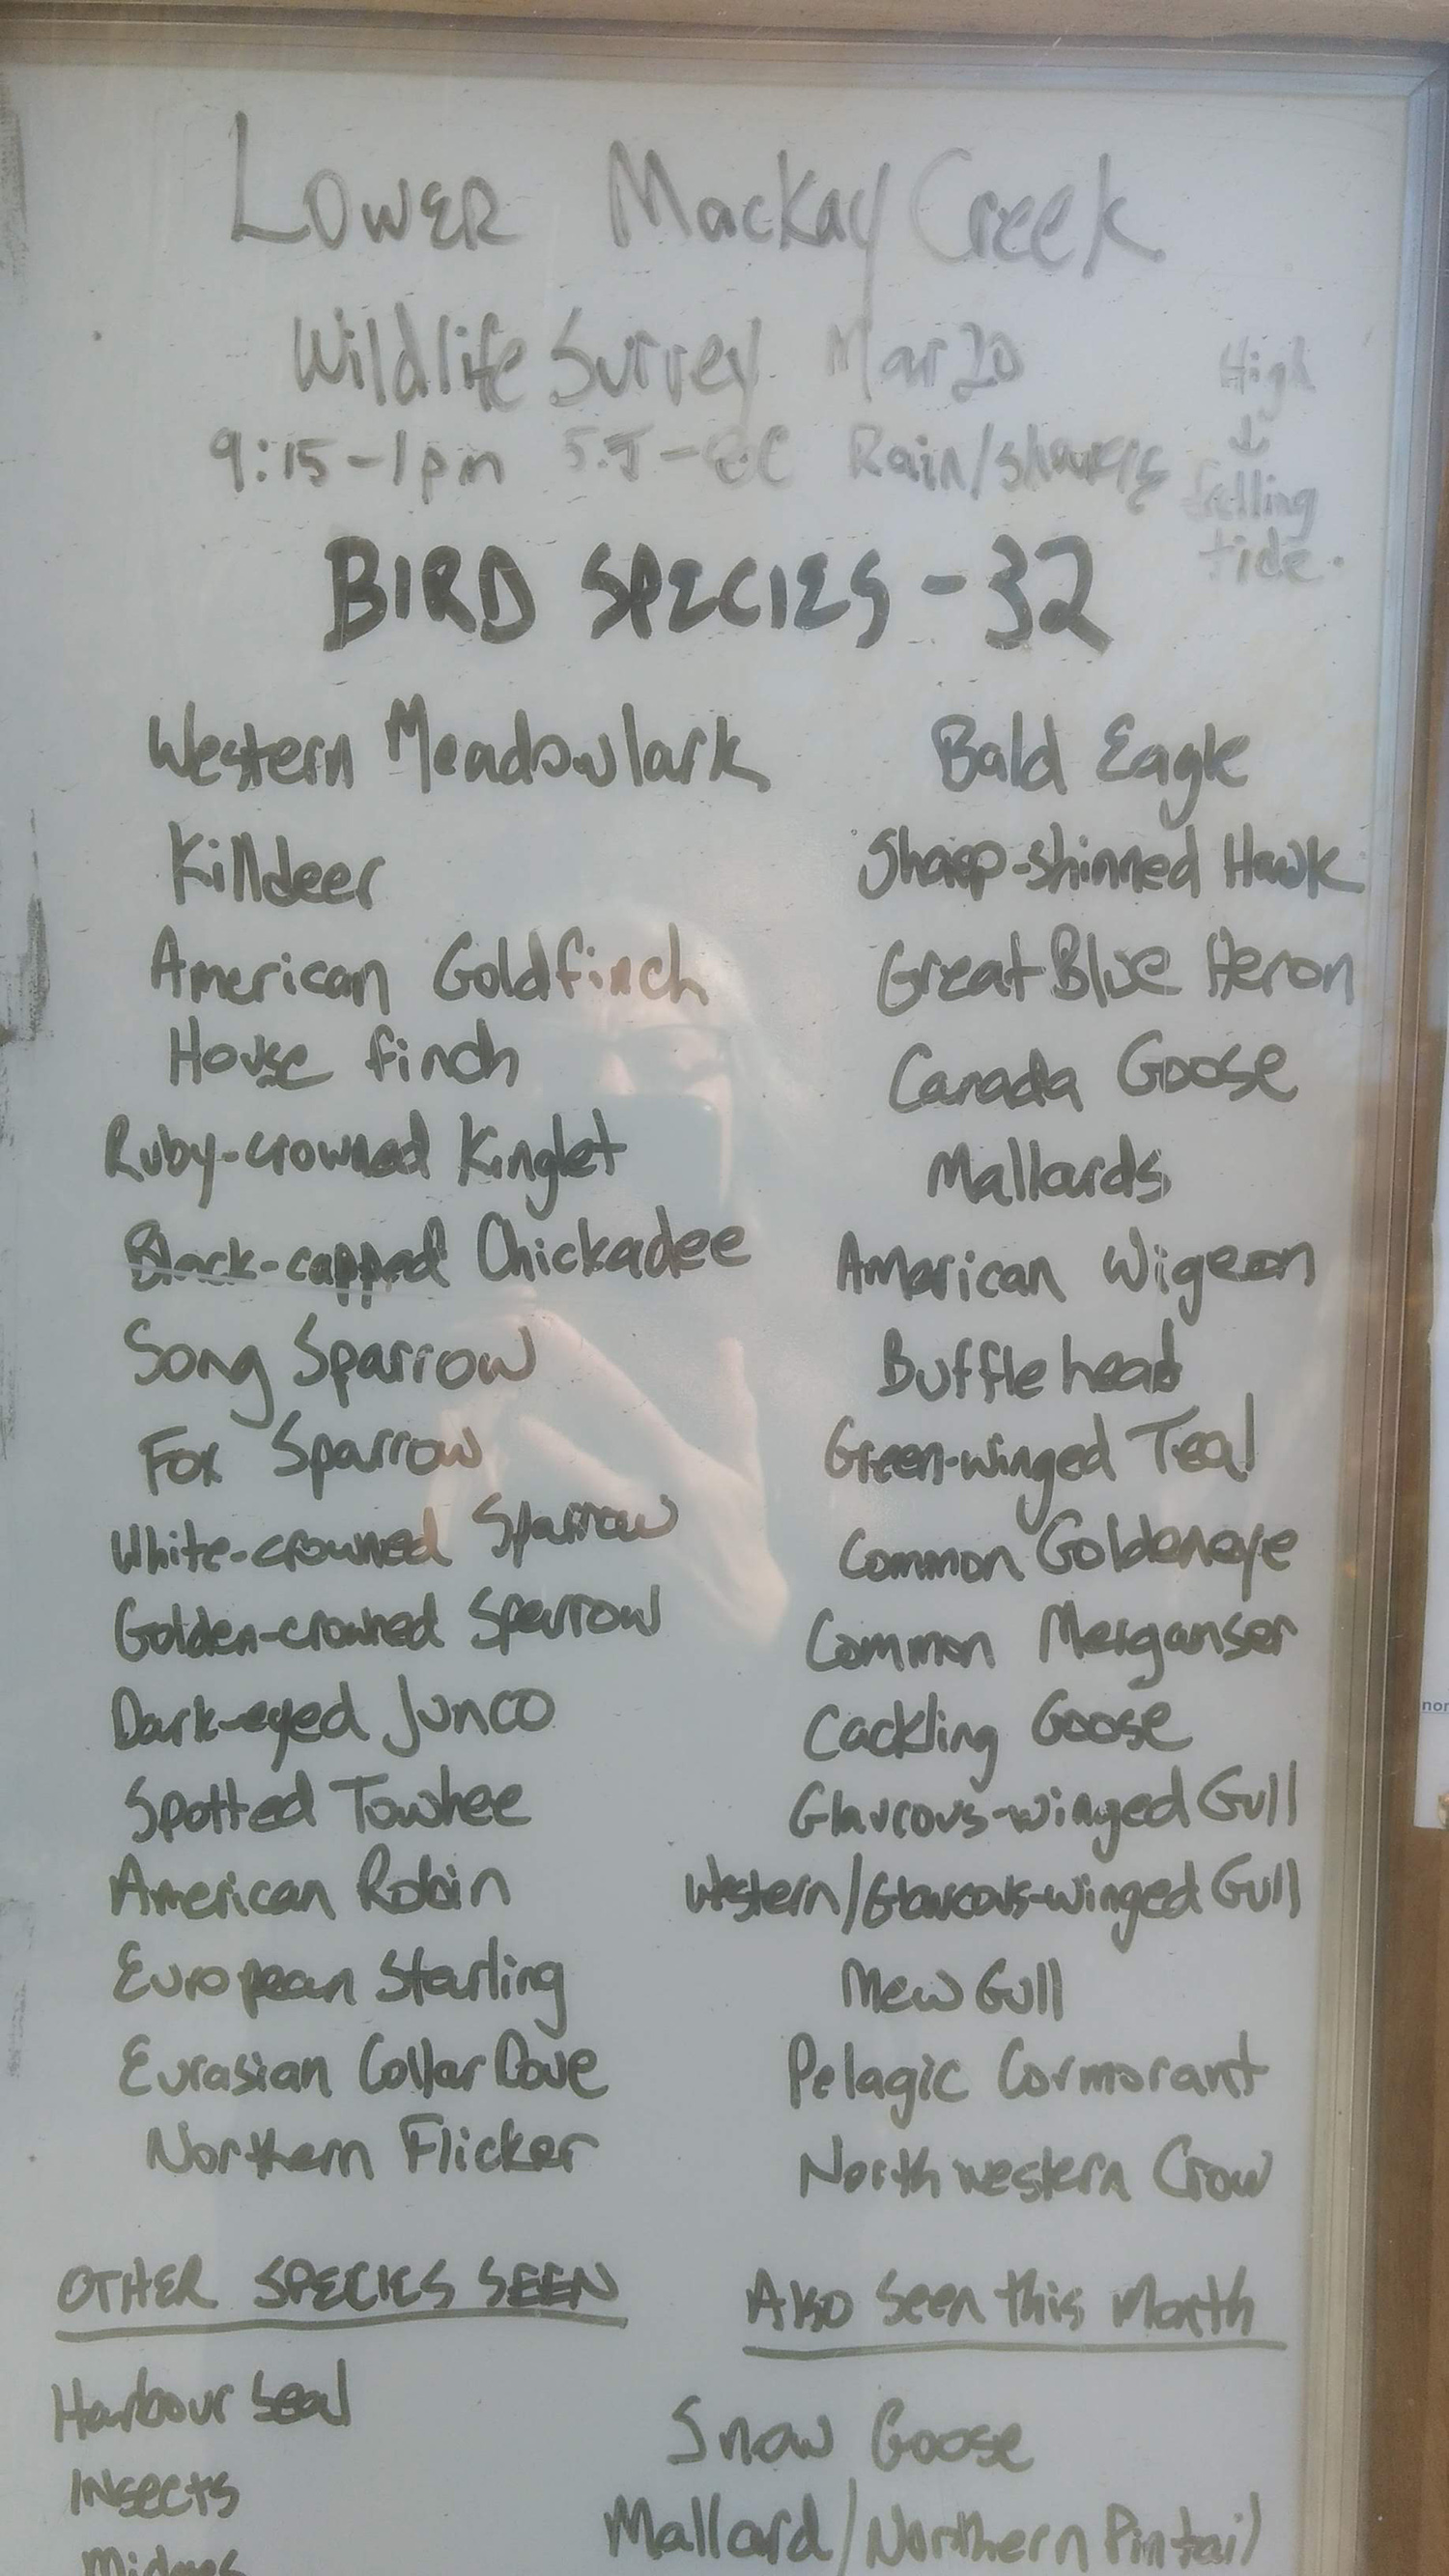 Lower Mackay Creek
Wildlife Survey Mar 20
9:15-1pm 5.5-8°C Rain/showers
High
↓
falling
tide.
BIRD SPECIES - 32
Western Meadowlark
Killdeer
American Goldfinch
House finch
Ruby-crowned Kinglet
Black-capped Chickadee
Song Sparrow
Fox Sparrow
White-crowned Sparrow
Golden-crowned Sparrow
Dark-eyed Junco
Spotted Towhee
American Robin
European Starling
Eurasian Collar Dove
Northern Flicker
Bald Eagle
Sharp-shinned Hawk
Great Blue Heron
Canada Goose
Mallards
American Wigeon
Bufflehead
Green-winged Teal
Common Goldeneye
Common Merganser
Cackling Goose
Glaucous-winged Gull
Western/Glaucous-winged Gull
Mew Gull
Pelagic Cormorant
Northwestern Crow
OTHER SPECIES SEEN
Harbour Seal
INsects
Midges
Also Seen this Month
Snow Goose
Mallard/Northern Pintail